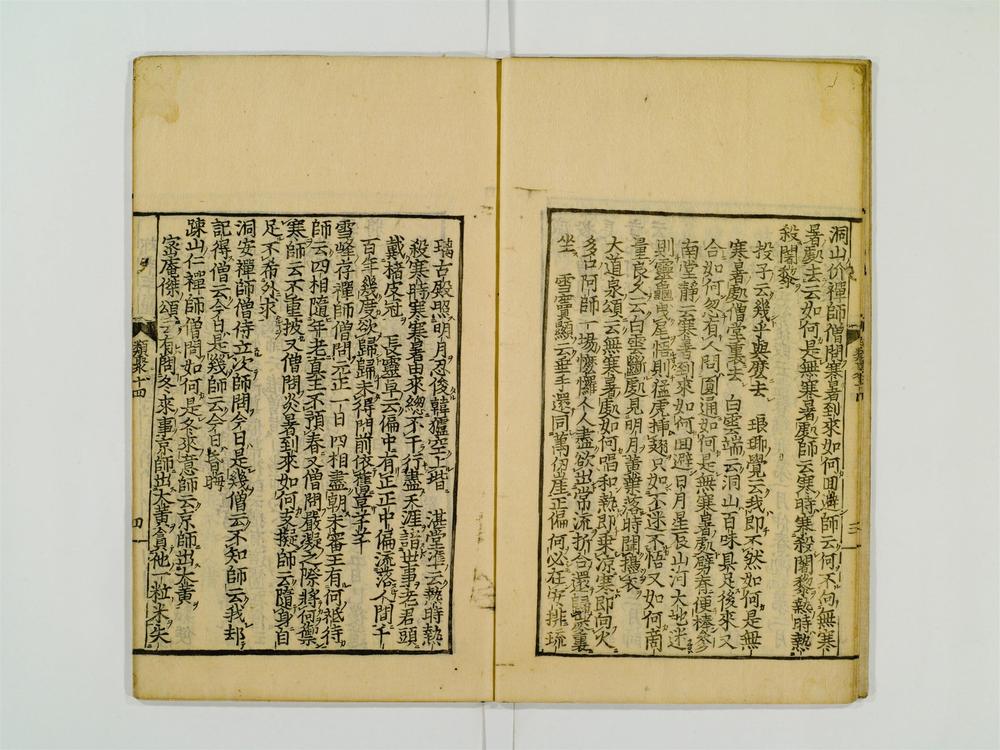 洞山价禪師僧問寒暑到來如何回避師云何不向無寒
暑處去云如何是無寒暑處師云寒時寒殺闍黎熱時熱
殺闍黎
投子云幾乎與麼去 瑯瑘覺云我即不然如何是無
寒暑處僧堂裏去 白雲端云洞山百味具足後來又
合如何忽有人問圓通如何是無寒暑處劈脊便棒參
南堂靜云寒暑到來如何回避日月星辰山河大地迷
則靈龜曳尾悟則猛虎插翅只如不迷不悟又如何商
量良久云白雲斷處見明月黃葉落時聞擣衣
大道泉頌云無寒暑處如何唱和熱即乘凉寒即向火
多口阿師一場懡㦬人人盡欲出常流折合還歸炭裏
坐 雪竇顯云垂手還同萬仞崖正偏何必在安排琉
璃古殿照明月忍俊韓獹空上堦 湛堂準云熱時熱
殺寒時寒寒暑由來總不干行盡天涯諳世事老君頭
戴楮皮冠 長靈卓云偏中有正正中偏流落人間千
百年幾度欲歸歸未得門前依舊草芊芊
雪峰存禪師僧問元正一日四相盡朝未審王有何祗待
師云四相隨年老眞王不預春又僧問嚴凝之際將何禦
寒師云不重披又僧問炎暑到來如何支擬師云隨身自
足不希外求
洞安禪師僧侍立次師問今日是幾僧云不知師云我却
記得僧云今日是幾師云今日昏晦
踈山仁禪師僧問如何是冬來意師云京師出大黃
密庵傑頌云有問冬來事京師出大黃貪他一粒米失
類聚十四
四
三